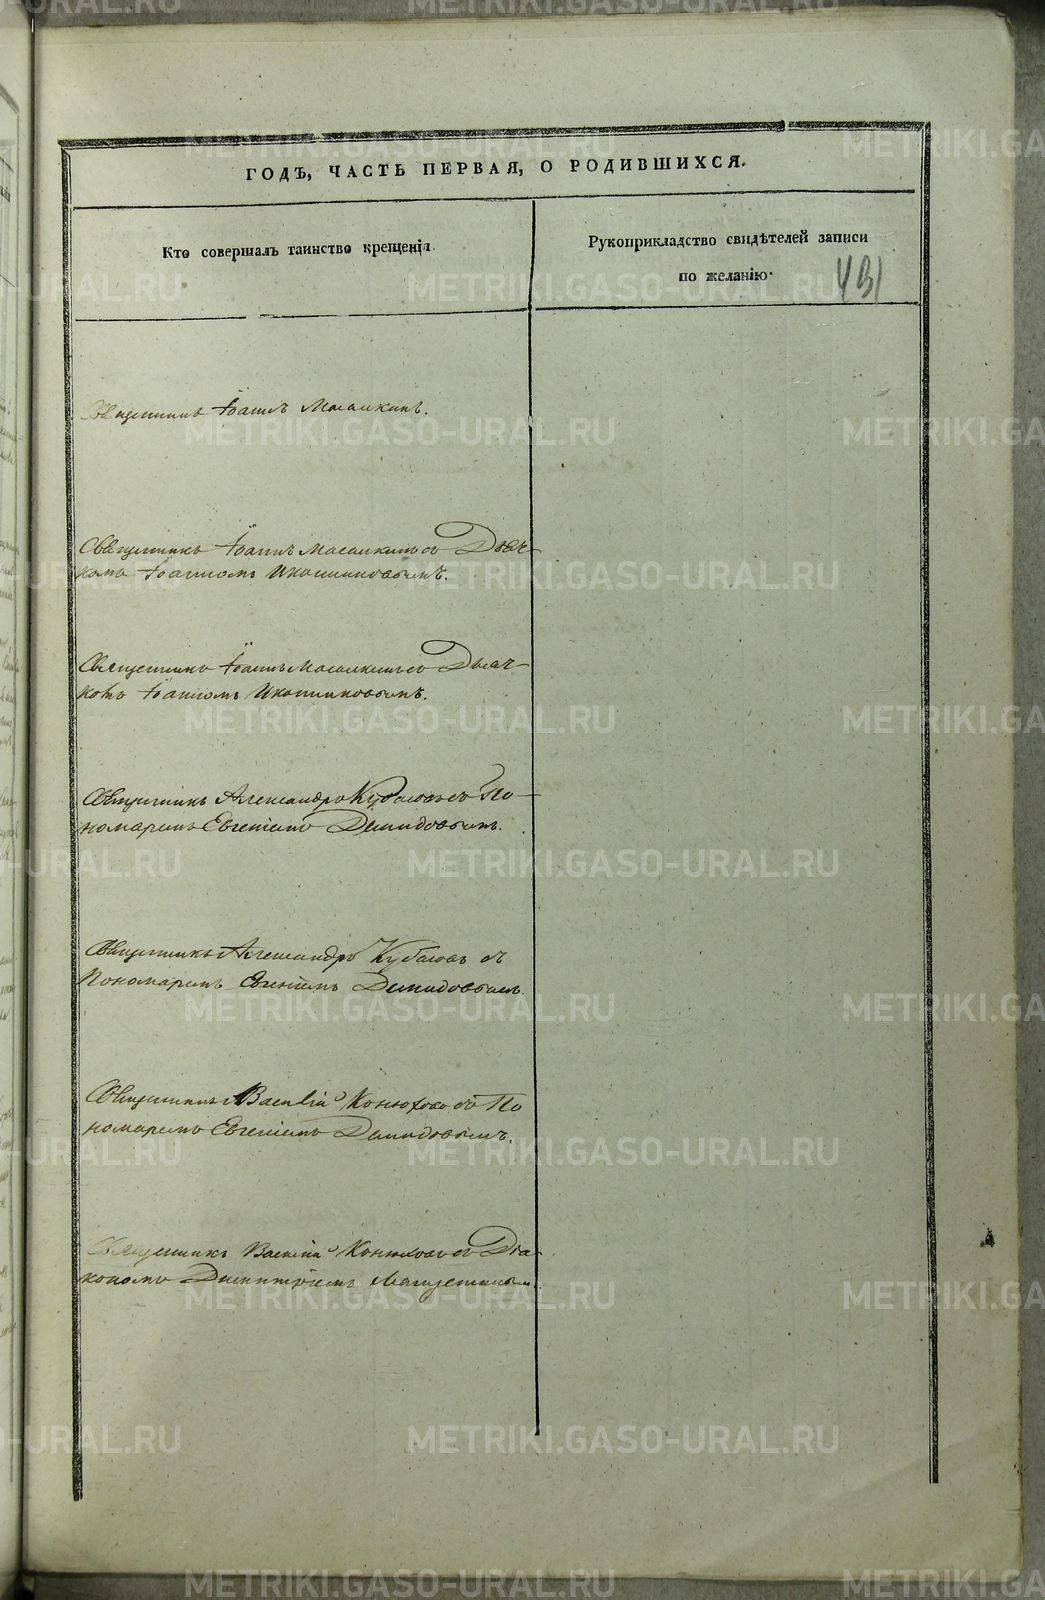 ГОДЪ, ЧАСТЬ ПЕРВАЯ, О РОДИВШИХСЯ.
Кто совершалъ таинство крещенія.
Рукоприкладство свидѣтелей записи
по желанію.
431
Священникъ Іоаннъ Масалкинъ.
Священникъ Іоаннъ Масалкинъ съ Дьяч-
комъ Іоанномъ Иконниковымъ.
Священникъ Іоаннъ Масалкинъ съ Дьяч-
комъ Іоанномъ Иконниковымъ.
Священникъ Александръ Кубасовъ съ По-
номаремъ Евгеніемъ Демидовымъ.
Священникъ Александръ Кубасовъ съ
Пономаремъ Евгеніемъ Демидовымъ.
Священникъ Василій Конюховъ съ По
номаремъ Евгеніемъ Демидовымъ.
Священникъ Василій Конюховъ съ Діа-
кономъ Димитріемъ
METRIKI.GASO-URAL.RU